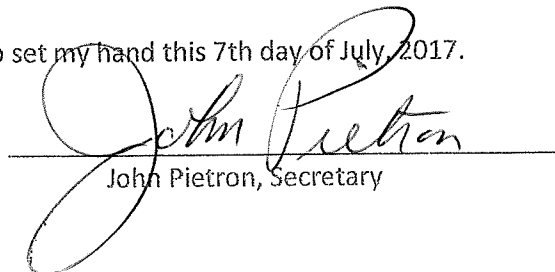 o set my hand this 7th day of July, 2017.
John Pietron
John Pietron, Secretary